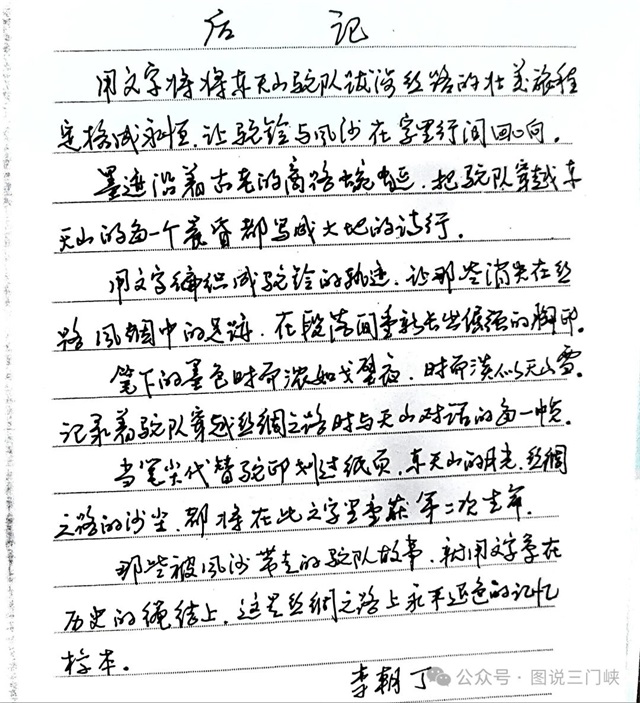 后记
用文字将将东天山驼队跋涉丝路的壮美旅程
定格成永恒，让驼铃与风沙在字里行间回响。
墨迹沿着古老的商路蜿蜒，把驼队穿越东
天山的每一个晨昏都写成大地的诗行。
用文字编织成驼铃的轨迹，让那些消失在丝
路风烟中的足迹，在段落间重新长出倔强的脚印。
笔下的墨色时而浓如戈壁夜，时而淡似天山雪。
记录着驼队穿越丝绸之路时与天山对话的每一个
当笔尖代替驼印划过纸页，东天山的月光，丝绸
之路的沙尘，都将在此文字里重获第二次生命。
那些被风沙带走的驼队故事，都用文字
历史的绳结上，这是丝绸之路上永不退色的记忆
标本。
李朝丁
公众号·图说三门峡